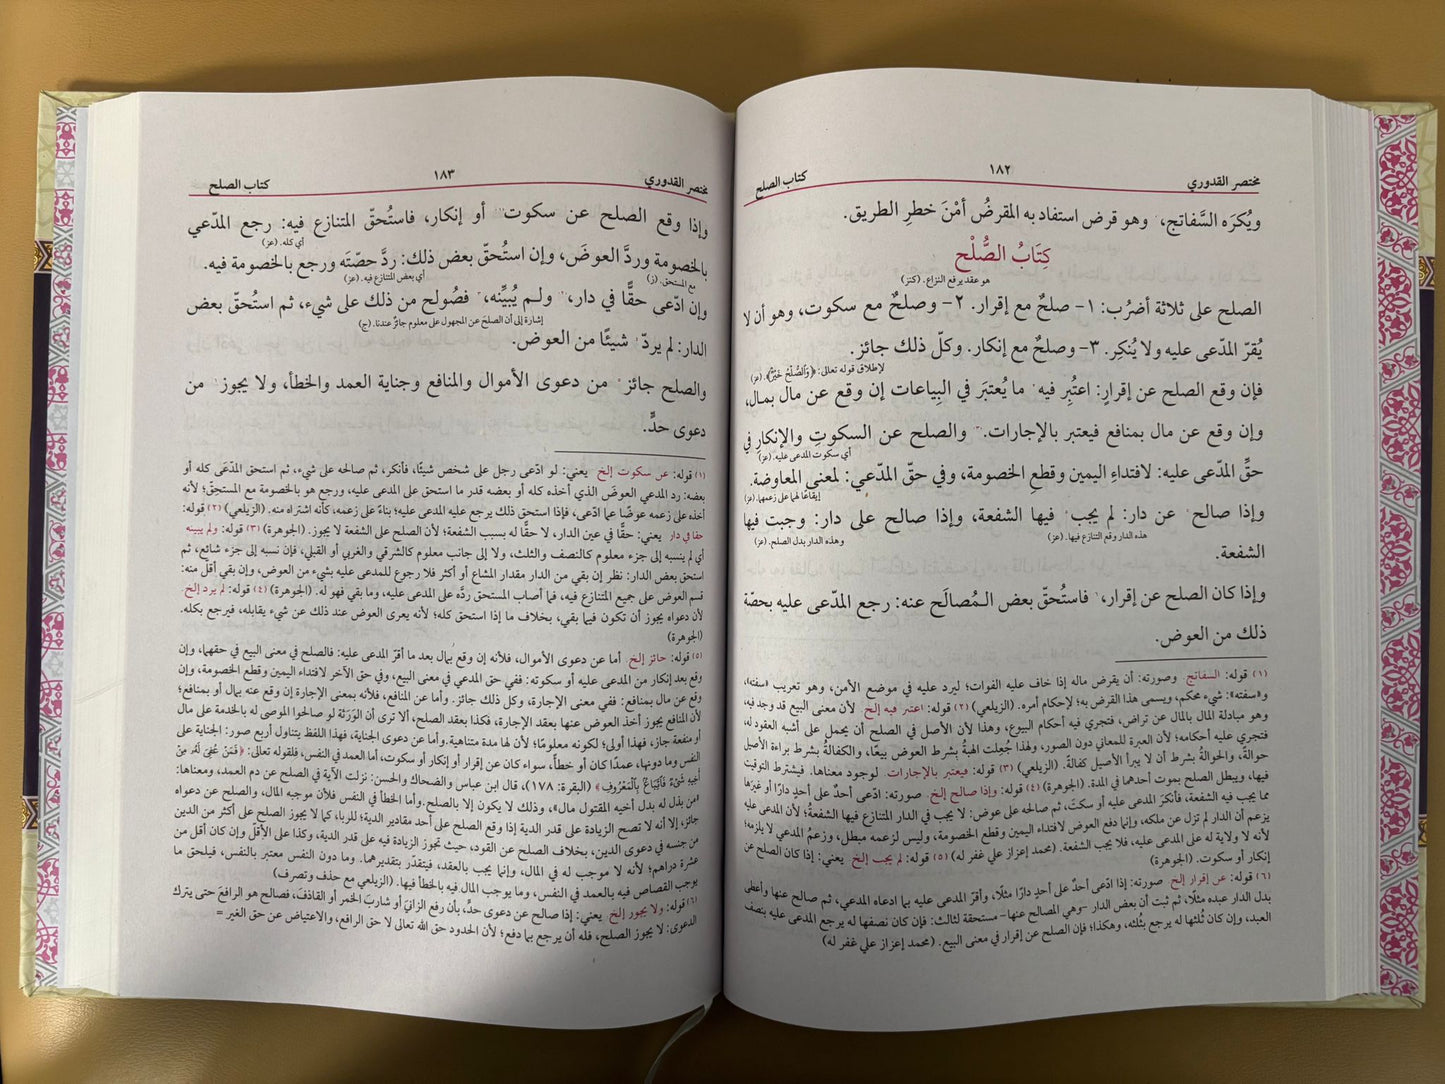 مختصر القدوري
١٨٢
كتاب الصلح
ويُكرَه السَّفاتج، وهو قرض استفاد به المقرضُ أمْنَ خطرِ الطريق.
كِتَابُ الصُّلْح
هو عقد يرفع النزاع. (كنز)
الصلح على ثلاثة أضرُب: ١- صلحٌ مع إقرار. ٢- وصلحٌ مع سكوت، وهو أن لا
يُقرّ المدّعى عليه ولا يُنكِر. ٣- وصلحٌ مع إنكار. وكلّ ذلك جائز.
لإطلاق قوله تعالى: ﴿وَالصُّلْحُ خَيْرٌ﴾. (عز)
فإن وقع الصلح عن إقرارٍ: اعتُبِر فيه ما يُعتبَر في البِياعات إن وقع عن مال بمـال،
وإن وقع عن مال بمنافع فيعتبر بالإجارات.(٣) والصلح عن السكوتِ والإنكارِ في
أي سكوت المدعى عليه. (عز)
حقِّ المدّعى عليه: لافتداءِ اليمين وقطعِ الخصومة، وفي حقّ المدّعي: لمعنى المعاوضة.
إيقاعًا لها على زعمهما. (عز)
وإذا صالح عن دار: لم يجب فيها الشفعة، وإذا صالح على دار: وجبت فيها
هذه الدار وقع التنازع فيها. (عز)
وهذه الدار بدل الصلح. (عز)
الشفعة.
وإذا كان الصلح عن إقرار، فاستُحقّ بعض الـمُصالَح عنه: رجع المدّعى عليه بحصّة
ذلك من العوض.
(١) قوله: السفاتج وصورته: أن يقرض ماله إذا خاف عليه الفوات؛ ليرد عليه في موضع الأمن، وهو تعريب «سفته»،
و«سفته»: شيء محكم، ويسمى هذا القرض به؛ لإحكام أمره. (الزيلعي) (٢) قوله: اعتبر فيه إلخ لأن معنى البيع قد وجد فيه،
وهو مبادلة المال بالمال عن تراض، فتجري فيه أحكام البيوع، وهذا لأن الأصل في الصلح أن يحمل على أشبه العقود له،
فتجري عليه أحكامه؛ لأن العبرة للمعاني دون الصور، ولهذا جُعلت الهبةُ بشرط العوض بيعًا، والكفالةُ بشرط براءة الأصيل
حوالةً، والحوالةُ بشرط أن لا يبرأ الأصيل كفالةً. (الزيلعي) (٣) قوله: فيعتبر بالإجارات لوجود معناها. فيشترط التوقيت
فيها، ويبطل الصلح بموت أحدهما في المدة. (الجوهرة) (٤) قوله: وإذا صالح إلخ. صورته: ادّعى أحدٌ على أحدٍ دارًا أو غيرَها
مما يجب فيه الشفعة، فأنكرَ المدعى عليه أو سكتَ، ثم صالحه على عوض: لا يجب في الدار المتنازع فيها الشفعةُ؛ لأن المدعى عليه
يزعم أن الدار لم تزل عن ملكه، وإنما دفع العوض لافتداء اليمين وقطع الخصومة، وليس لزعمه مبطل، وزعمُ المدعي لا يلزمه؛
لأنه لا ولاية له على المدعى عليه، فلا يجب الشفعة. (محمد إعزاز علي غفر له) (٥) قوله: لم يجب إلخ يعني: إذا كان الصلح عن
إنكار أو سكوت. (الجوهرة)
(٦) قوله: عن إقرار إلخ صورته: إذا ادّعى أحدٌ على أحدٍ دارًا مثلًا، وأقرّ المدعى عليه بما ادعاه المدعي، ثم صالح عنها وأعطى
بدل الدار عبده مثلًا، ثم ثبت أن بعض الدار -وهي المصالح عنها- مستحقة لثالث: فإن كان نصفها له يرجع المدعى عليه بنصف
العبد، وإن كان ثُلثها له يرجع بثُلثه، وهكذا؛ فإن الصلح عن إقرار في معنى البيع. (محمد إعزاز علي غفر له)
مختصر القدوري
١٨٣
كتاب الصلح
وإذا وقع الصلح عن سكوت(١) أو إنكار، فاستُحقّ المتنازع فيه: رجع المدّعي
أي كله. (عز)
بالخصومة وردَّ العوضَ، وإن استُحقّ بعض ذلك: ردَّ حصّتَه ورجع بالخصومة فيه.
مع المستحق. (ز)
أي بعض المتنازع فيه. (عز)
وإن ادّعى حقًّا في دار،(٢) ولـم يُبيِّنه،(٣) فصُولح من ذلك على شيء، ثم استُحقّ بعض
إشارة إلى أن الصلح عن المجهول على معلوم جائزٌ عندنا. (ج)
الدار: لم يردّ شيئًا من العوض.
والصلح جائز من دعوى الأموال والمنافع وجناية العمد والخطأ، ولا يجوز من
دعوى حدٍّ.
(١) قوله: عن سكوت إلخ يعني: لو ادّعى رجل على شخص شيئًا، فأنكر، ثم صالحه على شيء، ثم استحق المدّعَى كله أو
بعضه: رد المدعي العوضَ الذي أخذه كله أو بعضه قدر ما استحق على المدعى عليه، ورجع هو بالخصومة مع المستحِقّ؛ لأنه
أخذه على زعمه عوضًا عما ادّعى، فإذا استحق ذلك يرجع عليه المدعى عليه؛ بناءً على زعمه، كأنه اشتراه منه. (الزيلعي) (٢) قوله:
حقا في دار يعني: حقًّا في عين الدار، لا حقًّا له بسبب الشفعة؛ لأن الصلح على الشفعة لا يجوز. (الجوهرة) (٣) قوله: ولم يبينه
أي لم ينسبه إلى جزء معلوم كالنصف والثلث، ولا إلى جانب معلوم كالشرقي والغربي أو القبلي، فإن نسبه إلى جزء شائع، ثم
استحق بعض الدار: نظر إن بقي من الدار مقدار المشاع أو أكثر فلا رجوع للمدعى عليه بشيء من العوض، وإن بقي أقلّ منه:
قسم العوض على جميع المتنازع فيه، فما أصاب المستحق ردَّه على المدعى عليه، وما بقي فهو له. (الجوهرة) (٤) قوله: لم يرد إلخ.
لأن دعواه يجوز أن تكون فيما بقي، بخلاف ما إذا استحق كله؛ لأنه يعرى العوض عند ذلك عن شيء يقابله، فيرجع بكله.
(الجوهرة)
(٥) قوله: جائز إلخ. أما عن دعوى الأموال، فلأنه إن وقع بمال بعد ما أقرّ المدعى عليه: فالصلح في معنى البيع في حقهما، وإن
وقع بعد إنكار من المدعى عليه أو سكوته: ففي حق المدعي في معنى البيع، وفي حق الآخر لافتداء اليمين وقطع الخصومة، وإن
وقع عن مال بمنافع: ففي معنى الإجارة، وكل ذلك جائز. وأما عن المنافع، فلأنه بمعنى الإجارة إن وقع عنه بمال أو بمنافع؛
لأن المنافع يجوز أخذ العوض عنها بعقد الإجارة، فكذا بعقد الصلح، ألا ترى أن الوَرَثة لو صالحوا الموصى له بالخدمة على مال
أو منفعة جاز، فهذا أولى؛ لكونه معلومًا؛ لأن لها مدة متناهية. وأما عن دعوى الجناية، فهذا اللفظ يتناول أربع صور: الجناية على
النفس وما دونها، عمدًا كان أو خطأ، سواء كان عن إقرار أو إنكار أو سكوت، أما العمد في النفس، فلقوله تعالى: ﴿فَمَنْ عُفِيَ لَهُ مِنْ
أَخِيهِ شَيْءٌ فَاتِّبَاعٌ بِالْمَعْرُوفِ﴾ (البقرة: ١٧٨)، قال ابن عباس والضحاك والحسن: نزلت الآية في الصلح عن دم العمد، ومعناها:
«من بذل له بدل أخيه المقتول مال»، وذلك لا يكون إلا بالصلح. وأما الخطأ في النفس فلأن موجبه المال، والصلح عن دعواه
جائز، إلا أنه لا تصح الزيادة على قدر الدية إذا وقع الصلح على أحد مقادير الدية؛ للربا، كما لا يجوز الصلح على أكثر من الدين
من جنسه في دعوى الدين، بخلاف الصلح عن القود، حيث تجوز الزيادة فيه على قدر الدية، وكذا على الأقلّ وإن كان أقل من
عشرة دراهم؛ لأنه لا موجب له في المال، وإنما يجب بالعقد، فيتقدّر بتقديرهما. وما دون النفس معتبر بالنفس، فيلحق ما
يوجب القصاص فيه بالعمد في النفس، وما يوجب المال فيه بالخطأ فيها. (الزيلعي مع حذف وتصرف)
(٦) قوله: ولا يجوز إلخ يعني: إذا صالح عن دعوى حدٍّ، بأن رفع الزانيَ أو شاربَ الخمر أو القاذفَ، فصالح هو الرافعَ حتى يترك
الدعوى: لا يجوز الصلح، فله أن يرجع بما دفع؛ لأن الحدود حق الله تعالى لا حق الرافع، والاعتياض عن حق الغير =